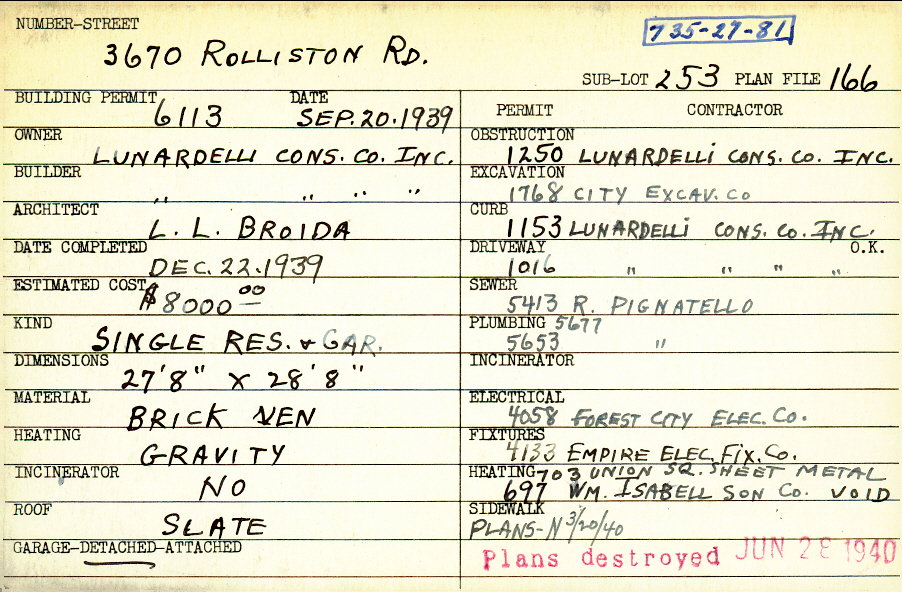 NUMBER-STREET
3670 ROLLISTON RD.
735-27-81
SUB-LOT 253 PLAN FILE 166
BUILDING PERMIT 6113 DATE SEP. 20. 1939
OWNER LUNARDELLI CONS. CO. INC.
BUILDER " " " "
ARCHITECT L. L. BROIDA
DATE COMPLETED DEC. 22. 1939
ESTIMATED COST $8000 00
KIND SINGLE RES. & GAR.
DIMENSIONS 27'8" X 28'8"
MATERIAL BRICK VEN
HEATING GRAVITY
INCINERATOR NO
ROOF SLATE
GARAGE-DETACHED-ATTACHED
PERMIT CONTRACTOR
OBSTRUCTION 1250 LUNARDELLI CONS. CO. INC.
EXCAVATION 1768 CITY EXCAV. CO
CURB 1153 LUNARDELLI CONS. CO. INC.
DRIVEWAY O.K.
1016 " " " "
SEWER 5413 R. PIGNATELLO
PLUMBING 5677
5653 "
INCINERATOR
ELECTRICAL 4058 FOREST CITY ELEC. CO.
FIXTURES 4133 EMPIRE ELEC. FIX. CO.
HEATING 703 UNION SQ. SHEET METAL
697 WM. ISABELL SON CO. VOID
SIDEWALK
PLANS-N 3/20/40
Plans destroyed JUN 28 1940